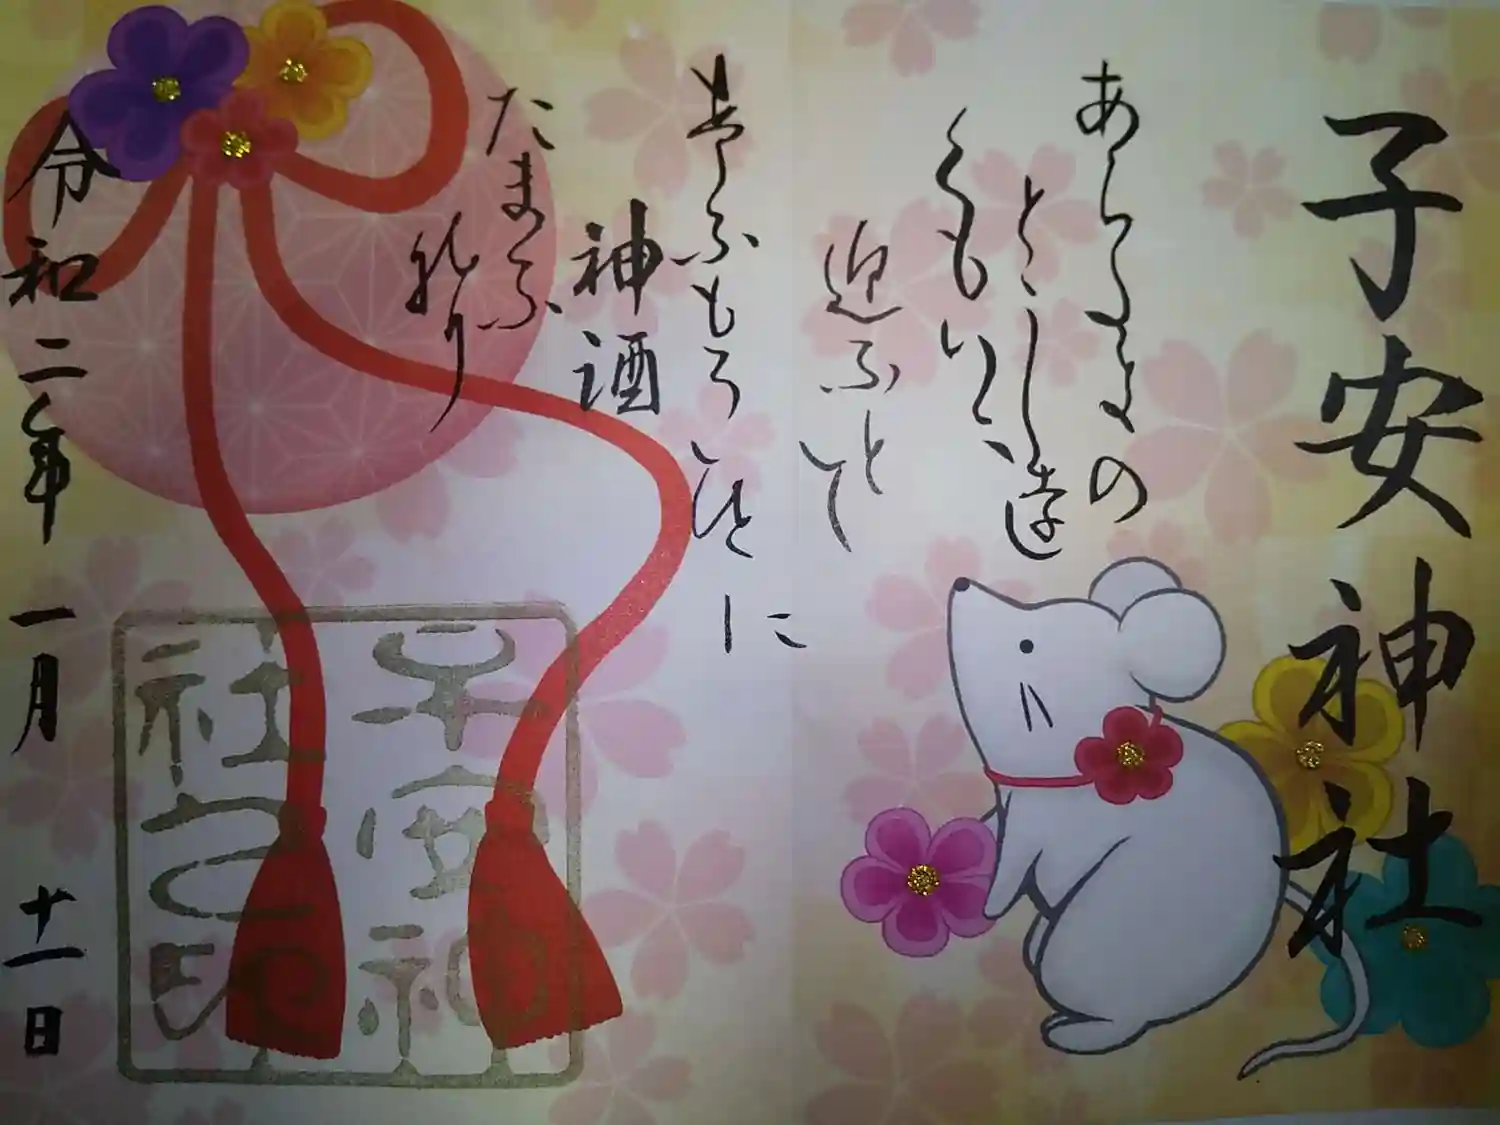 子安神社
あらたまの
とし遠
くもいに
迎ふとて
けふもろひとに
神酒
たまふ
令和二年 一月 十一日
子安神
社之印